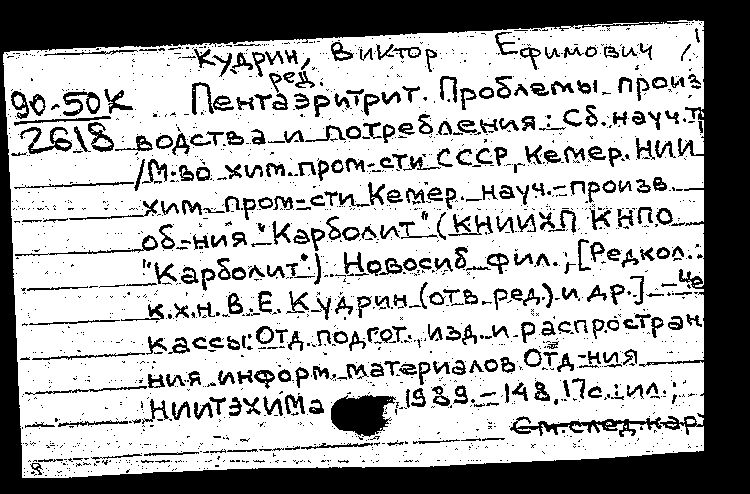 Кудрин, Виктор Ефимович,
ред.
90-50К Пентаэритрит. Проблемы произ
2618 водства и потребления: Сб. науч. тр
/М-во хим. пром-сти СССР, Кемер. НИИ
хим. пром-сти Кемер. науч.-произв.
об-ния "Карболит" (КНИИХП КНПО
"Карболит") Новосиб. фил.; [Редкол.:
к.х.н. В.Е. Кудрин (отв. ред.) и др.] - Че
кассы: Отд. подгот., изд. и распростран
ния информ. материалов Отд-ния
НИИТЭХИМа 1989. - 148, 17с.: ил.;
См. след. карт
8